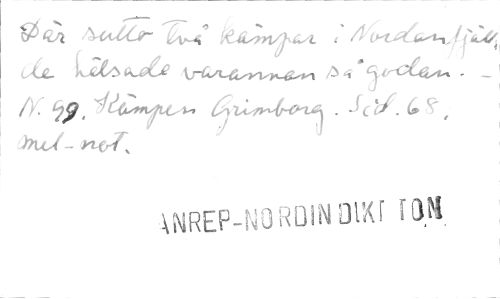 Där sutto två kämpar i Nordanfjäll,
de hälsade varannan så godan. –
N. 99, Kämpen Grimborg. Sid. 68,
mel-not.
ANREP-NORDIN DIKT TON